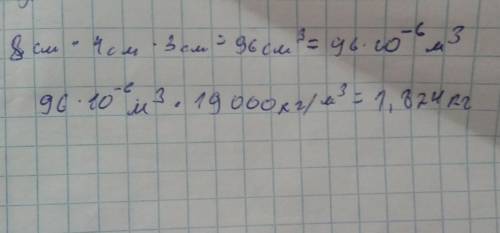 8см · 4см · 3см = 96см³ = 96·10⁻⁶ м³
96·10⁻⁶ м³ · 19 000кг/м³ = 1,824кг